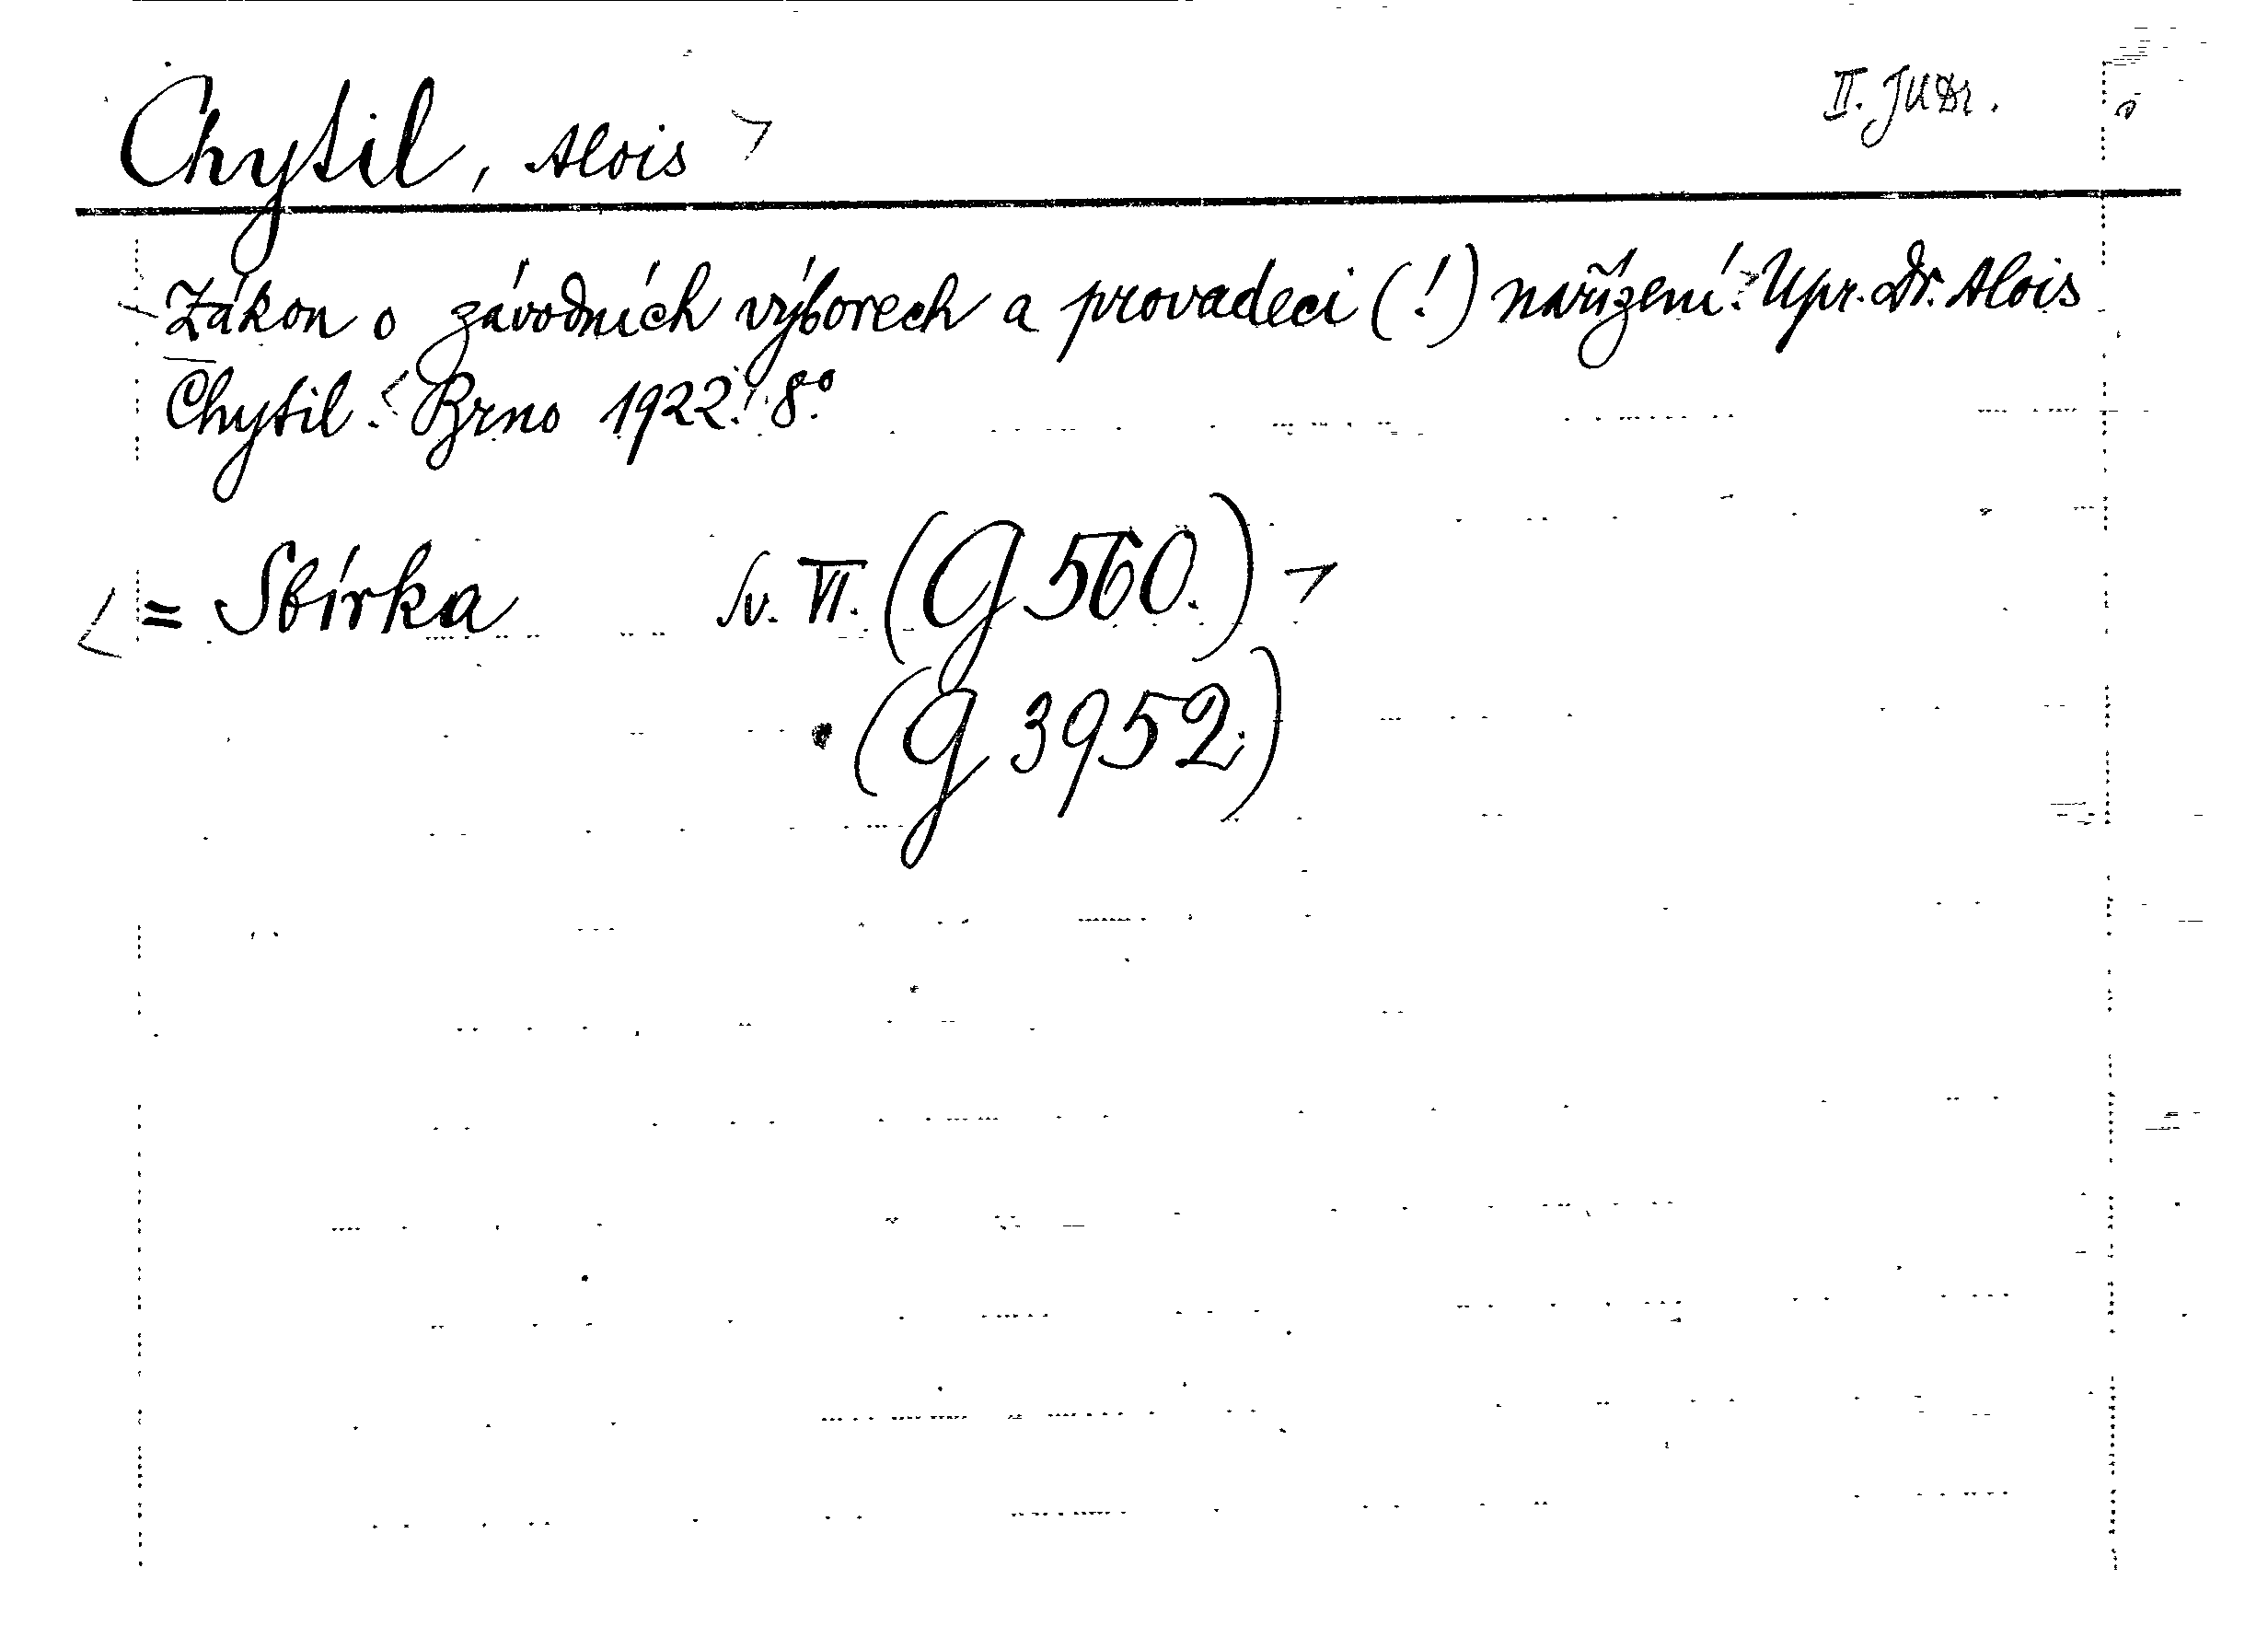 Chytil, Alois
II. JUDr.
Zákon o závodních výborech a provadeci (!) nařízení. Upr. Dr. Alois
Chytil. Brno 1922. 8°
= Sbírka Sv. VI. (G 560.)
(G 3952.)